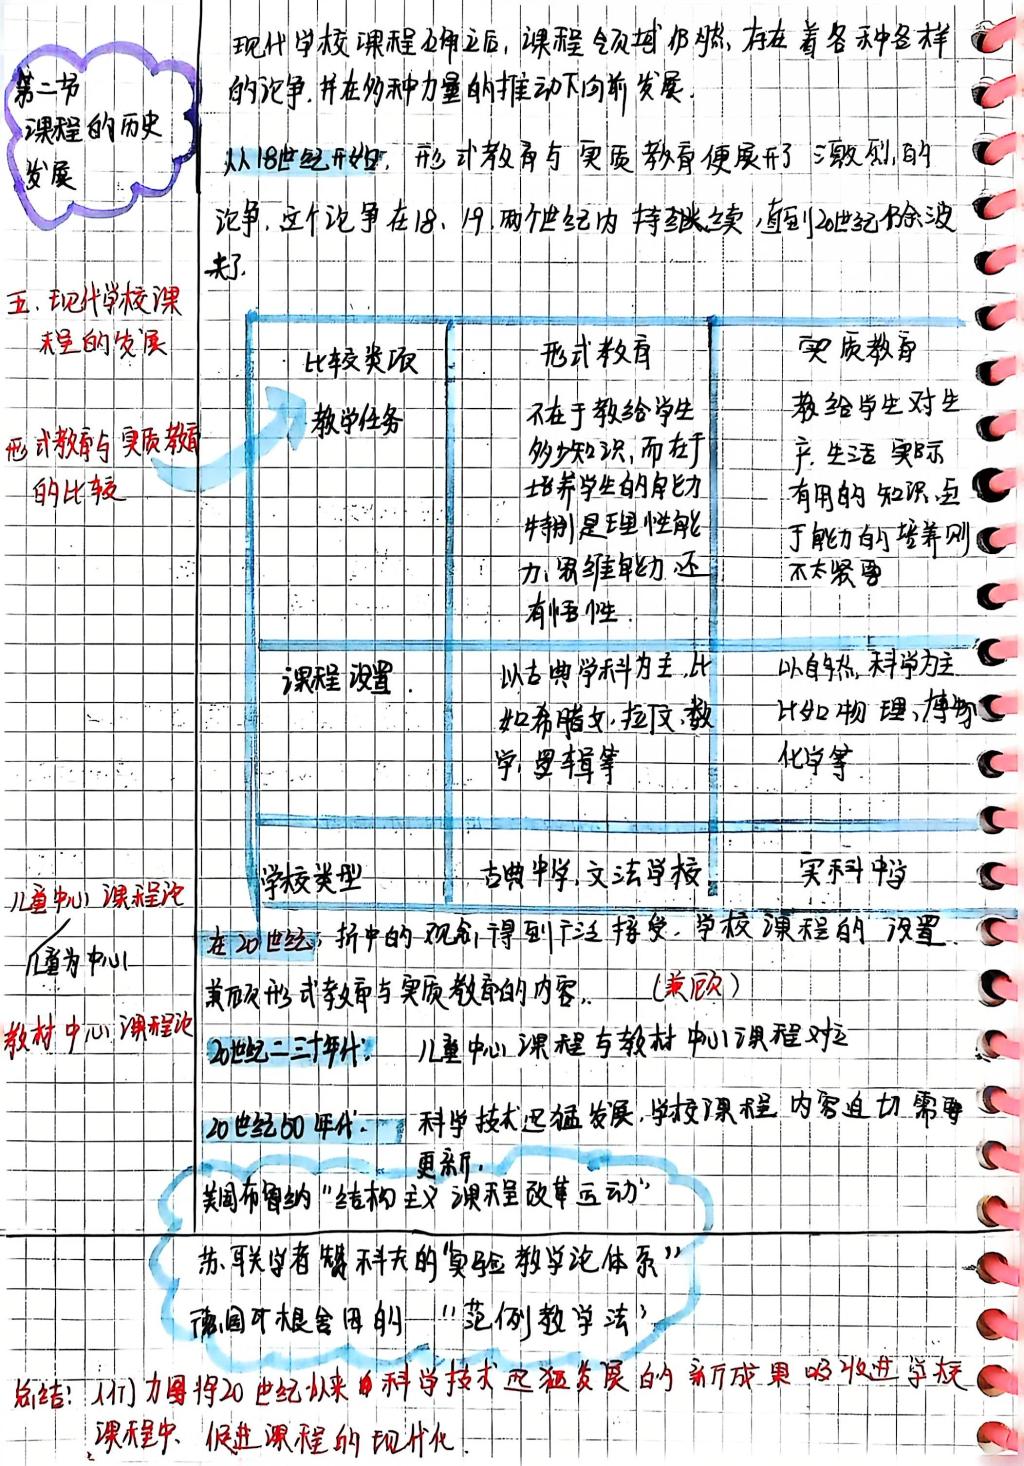 第二节
课程的历史
发展
现代学校课程确立后，课程领域仍然，存在着各种各样
的论争，并在多种力量的推动下向前发展．
从18世纪开始，形式教育与实质教育便展开了激烈的
论争，这个论争在18、19，两个世纪内持续，直到20世纪仍余波
未了．
五．现代学校课
程的发展
形式教育与实质教育
的比较
比较类项
形式教育
实质教育
教学任务
不在于教给学生
多少知识，而在于
培养学生的能力
特别是理性能
力，思维能力还
有悟性．
教给学生对生
产，生活实际
有用的知识，至
于能力的培养则
不太紧要
课程设置．
以古典学科为主，比
如希腊文，拉丁文，数
学，逻辑等
以自然，科学为主
比如物理、博物
化学等
学校类型
古典中学，文法学校．
实科中学
儿童中心课程论
儿童为中心
教材中心课程论
在20世纪，折中的观念，得到广泛接受，学校课程的设置
兼顾形式教育与实质教育的内容．（兼顾）
20世纪二三十年代．儿童中心课程与教材中心课程对立
20世纪60年代．科学技术迅猛发展，学校课程内容迫切需要
更新，
美国布鲁纳“结构主义课程改革运动”
苏联学者赞科夫的“实验教学论体系”
德国瓦根舍因的“范例教学法”
总结：人们力图将20世纪以来科学技术迅猛发展的新成果吸收进学校
课程中，促进课程的现代化．